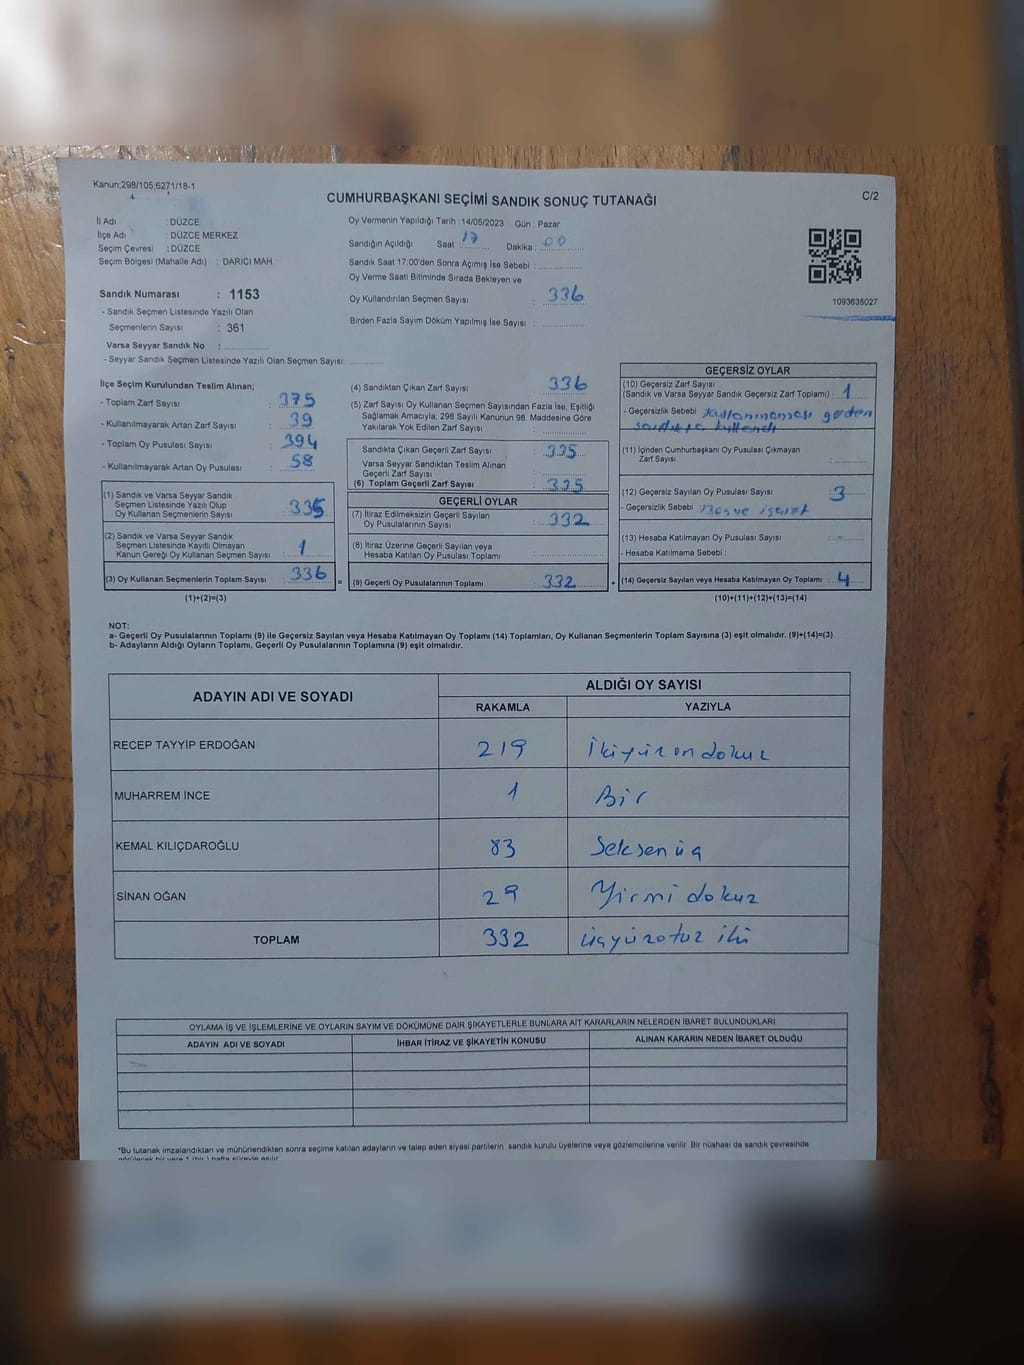 Kanun:298/105;6271/18-1
CUMHURBAŞKANI SEÇİMİ SANDIK SONUÇ TUTANAĞI
C/2
İl Adı : DÜZCE
İlçe Adı : DÜZCE MERKEZ
Seçim Çevresi : DÜZCE
Seçim Bölgesi (Mahalle Adı) : DARICI MAH.
Oy Vermenin Yapıldığı Tarih : 14/05/2023 Gün : Pazar
Sandığın Açıldığı Saat : 17 Dakika : 00
Sandık Saat 17.00'den Sonra Açımış İse Sebebi :
Oy Verme Saati Bitiminde Sırada Bekleyen ve
Oy Kullandırılan Seçmen Sayısı : 336
Birden Fazla Sayım Döküm Yapılmış İse Sayısı :
1093635027
Sandık Numarası : 1153
- Sandık Seçmen Listesinde Yazılı Olan
Seçmenlerin Sayısı : 361
Varsa Seyyar Sandık No :
- Seyyar Sandık Seçmen Listesinde Yazılı Olan Seçmen Sayısı:
İlçe Seçim Kurulundan Teslim Alınan;
- Toplam Zarf Sayısı : 375
- Kullanılmayarak Artan Zarf Sayısı : 39
- Toplam Oy Pusulası Sayısı : 394
- Kullanılmayarak Artan Oy Pusulası : 58
(1) Sandık ve Varsa Seyyar Sandık
Seçmen Listesinde Yazılı Olup
Oy Kullanan Seçmenlerin Sayısı : 335
(2) Sandık ve Varsa Seyyar Sandık
Seçmen Listesinde Kayıtlı Olmayan
Kanun Gereği Oy Kullanan Seçmen Sayısı : 1
(3) Oy Kullanan Seçmenlerin Toplam Sayısı : 336
(1)+(2)=(3)
(4) Sandıktan Çıkan Zarf Sayısı : 336
(5) Zarf Sayısı Oy Kullanan Seçmen Sayısından Fazla İse, Eşitliği
Sağlamak Amacıyla; 298 Sayılı Kanunun 98. Maddesine Göre
Yakılarak Yok Edilen Zarf Sayısı :
Sandıkta Çıkan Geçerli Zarf Sayısı : 335
Varsa Seyyar Sandıktan Teslim Alınan
Geçerli Zarf Sayısı :
(6) Toplam Geçerli Zarf Sayısı : 335
GEÇERLİ OYLAR
(7) İtiraz Edilmeksizin Geçerli Sayılan
Oy Pusulalarının Sayısı : 332
(8) İtiraz Üzerine Geçerli Sayılan veya
Hesaba Katılan Oy Pusulası Toplamı :
= (9) Geçerli Oy Pusulalarının Toplamı : 332 +
GEÇERSİZ OYLAR
(10) Geçersiz Zarf Sayısı
(Sandık ve Varsa Seyyar Sandık Geçersiz Zarf Toplamı) : 1
- Geçersizlik Sebebi kullanmaması gereken
sandıkta kullandı
(11) İçinden Cumhurbaşkanı Oy Pusulası Çıkmayan
Zarf Sayısı :
(12) Geçersiz Sayılan Oy Pusulası Sayısı : 3
- Geçersizlik Sebebi
(13) Hesaba Katılmayan Oy Pusulası Sayısı :
- Hesaba Katılmama Sebebi :
(14) Geçersiz Sayılan veya Hesaba Katılmayan Oy Toplamı : 4
(10)+(11)+(12)+(13)=(14)
NOT:
a- Geçerli Oy Pusulalarının Toplamı (9) ile Geçersiz Sayılan veya Hesaba Katılmayan Oy Toplamı (14) Toplamları, Oy Kullanan Seçmenlerin Toplam Sayısına (3) eşit olmalıdır. (9)+(14)=(3)
b- Adayların Aldığı Oyların Toplamı, Geçerli Oy Pusulalarının Toplamına (9) eşit olmalıdır.
ADAYIN ADI VE SOYADI
ALDIĞI OY SAYISI
RAKAMLA YAZIYLA
RECEP TAYYİP ERDOĞAN 219 İkiyüz on dokuz
MUHARREM İNCE 1 Bir
KEMAL KILIÇDAROĞLU 83 Seksen üç
SİNAN OĞAN 29 Yirmi dokuz
TOPLAM 332 üçyüzotuz iki
OYLAMA İŞ VE İŞLEMLERİNE VE OYLARIN SAYIM VE DÖKÜMÜNE DAİR ŞİKAYETLERLE BUNLARA AİT KARARLARIN NELERDEN İBARET BULUNDUKLARI
ADAYIN ADI VE SOYADI İHBAR İTİRAZ VE ŞİKAYETİN KONUSU ALINAN KARARIN NEDEN İBARET OLDUĞU
*Bu tutanak imzalandıktan ve mühürlendikten sonra seçime katılan adayların ve talep eden siyasi partilerin sandık kurulu üyelerine veya gözlemcilerine verilir. Bir nüshası da sandık çevresinde